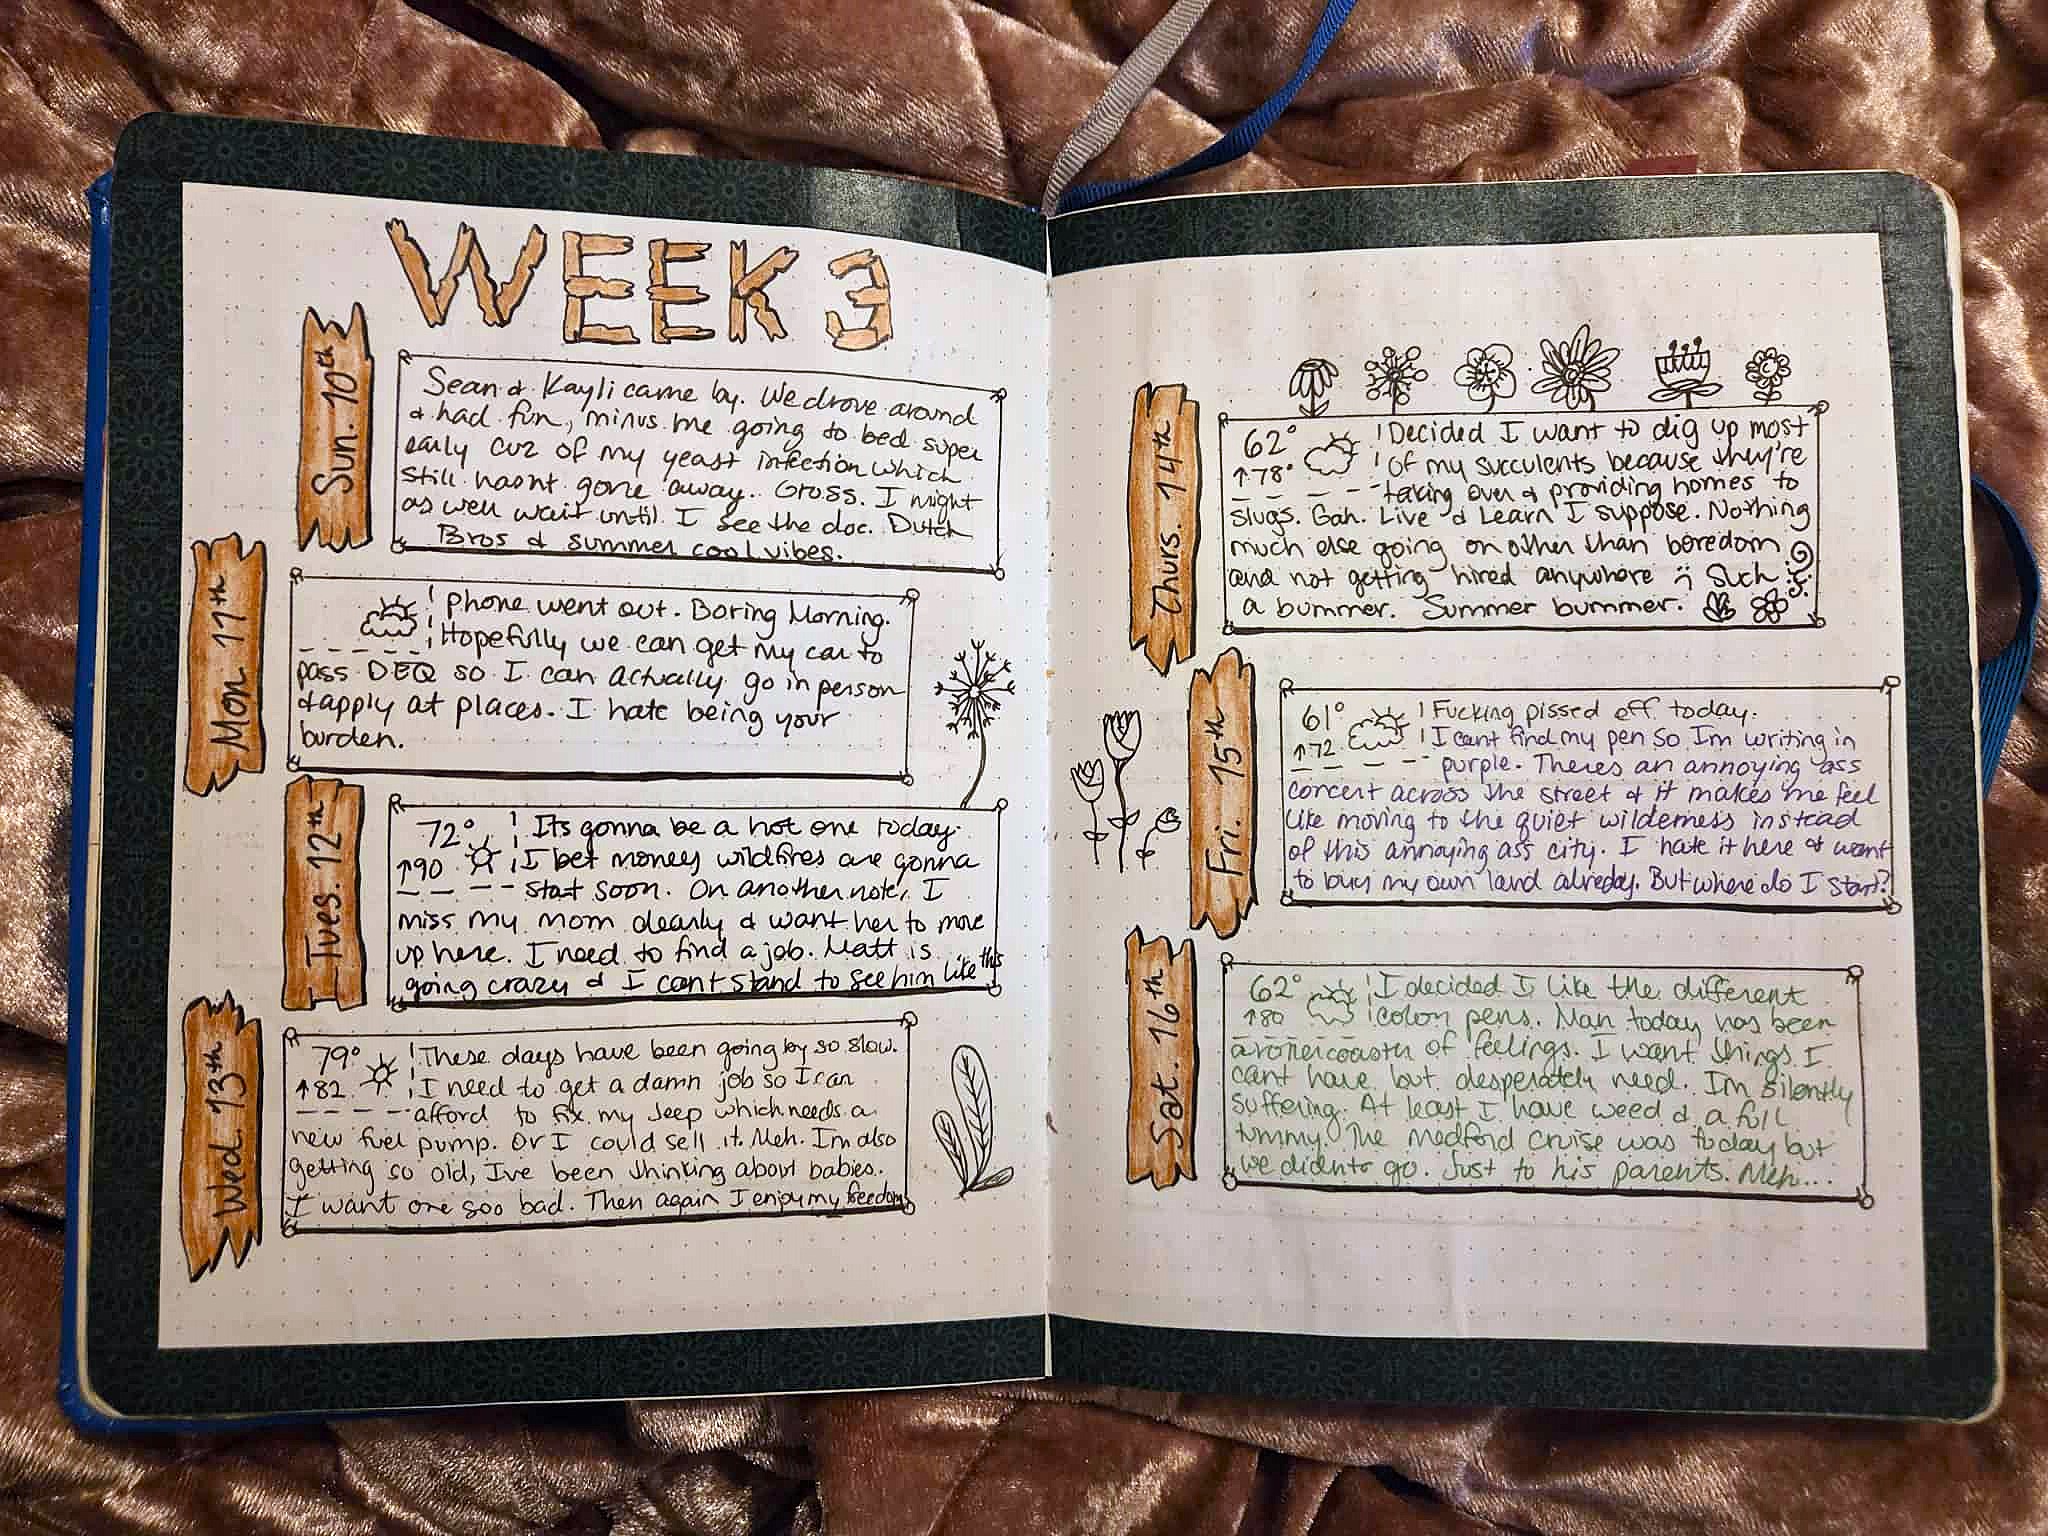 WEEK 3
Sun. 10th
Sean & Kayli came by. We drove around
& had fun, minus me going to bed super
early cuz of my yeast infection which
still hasnt gone away. Gross. I might
as well wait until I see the doc. Dutch
Bros & summer cool vibes.
Mon. 11th
Phone went out. Boring Morning.
Hopefully we can get my car to
pass DEQ so I can actually go in person
& apply at places. I hate being your
burden.
Tues. 12th
72° Its gonna be a hot one today.
↑90 I bet money wildfires are gonna
start soon. On another note, I
miss my mom dearly & want her to move
up here. I need to find a job. Matt is
going crazy & I cant stand to see him like this
Wed. 13th
79° These days have been going by so slow.
↑82 I need to get a damn job so I can
afford to fix my Jeep which needs a
new fuel pump. Or I could sell it. Meh. Im also
getting so old, Ive been thinking about babies.
I want one soo bad. Then again I enjoy my freedom
Thurs. 14th
62° Decided I want to dig up most
↑78° of my succulents because they're
taking over & providing homes to
slugs. Gah. Live & Learn I suppose. Nothing
much else going on other than boredom
and not getting hired anywhere :( Such
a bummer. Summer bummer.
Fri. 15th
61° Fucking pissed off today.
↑72 I cant find my pen so Im writing in
purple. Theres an annoying ass
concert across the street & it makes me feel
like moving to the quiet wilderness instead
of this annoying ass city. I hate it here & want
to buy my own land already. But where do I start?
Sat. 16th
62° I decided I like the different
↑80 color pens. Man today has been
a rollercoaster of feelings. I want things I
cant have but desperately need. Im silently
suffering. At least I have weed & a full
tummy. The Medford cruise was today but
we didnt go. Just to his parents. Meh...